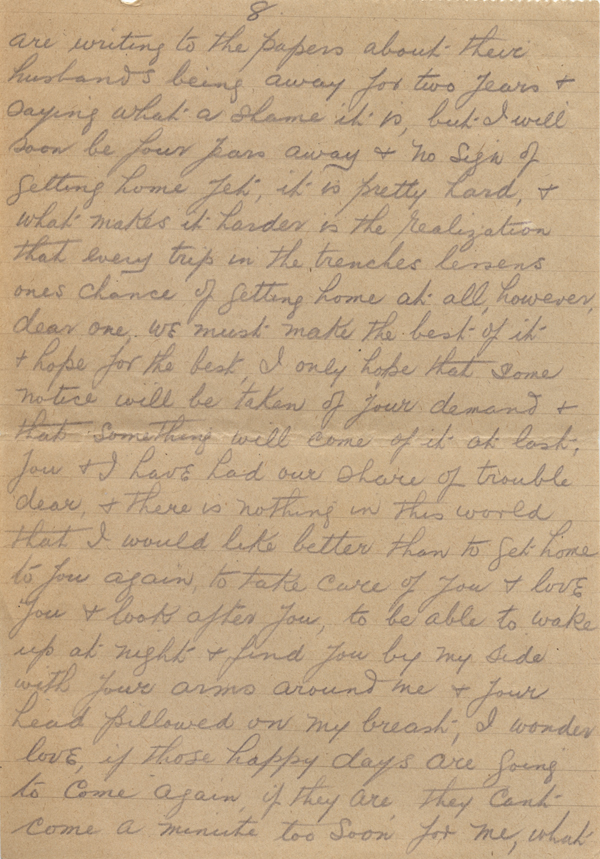 8
are writing to the papers about their
husbands being away for two years +
saying what a shame it is, but I will
soon be four years away + no sign of
getting home yet, it is pretty hard, +
what makes it harder is the realization
that every trip in the trenches lessens
ones chance of getting home at all, however,
dear one, we must make the best of it
+ hope for the best, I only hope that some
notice will be taken of your demand +
that something will come of it at last,
You + I have had our share of trouble
dear, + there is nothing in this world
that I would like better than to get home
to you again, to take care of you + love
you + look after you, to be able to wake
up at night + find you by my side
with your arms around me + your
head pillowed on my breast, I wonder
love, if those happy days are going
to come again, if they are, they cant
come a minute too soon for me, what